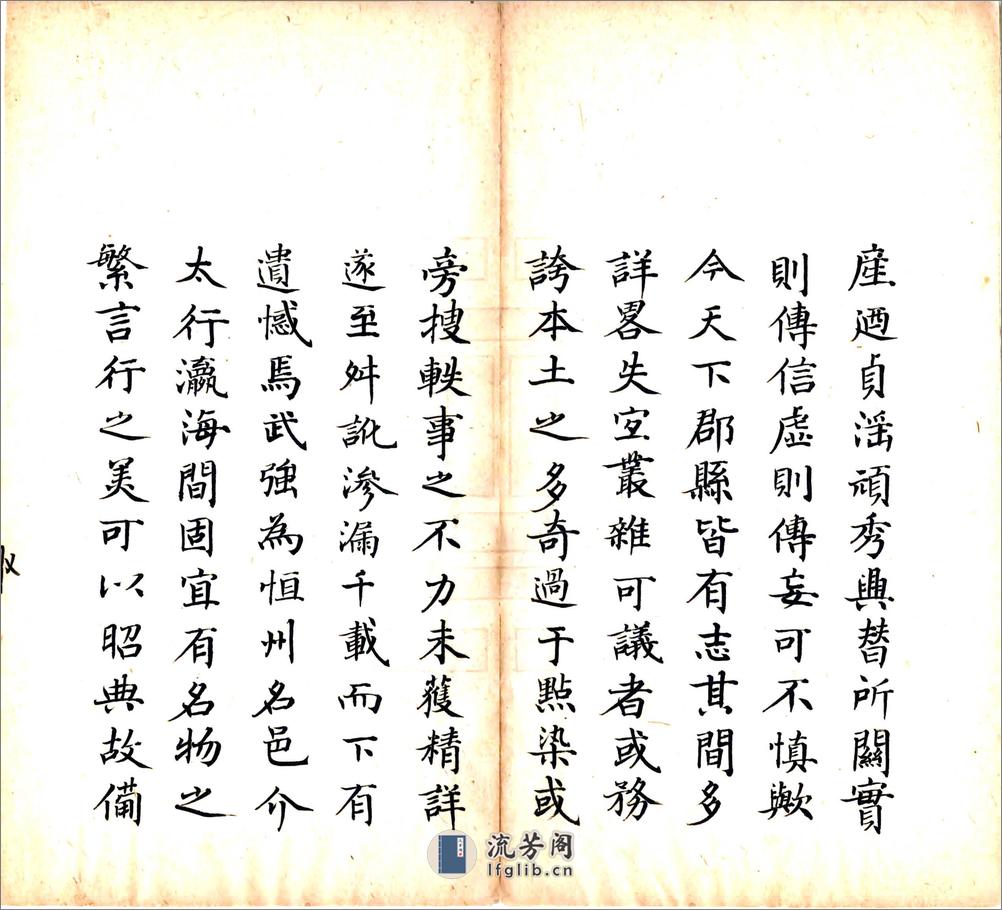 産迺貞淫頑秀興替所關實
則傳信虛則傳妄可不慎歟
今天下郡縣皆有志其間多
詳畧失宜叢雜可議者或務
誇本土之多奇過于點染或
旁搜軼事之不力未獲精詳
遂至舛訛滲漏千載而下有
遺憾焉武強為恒州名邑介
太行瀛海間固宜有名物之
繁言行之美可以昭典故備
流芳阁
lfglib.cn